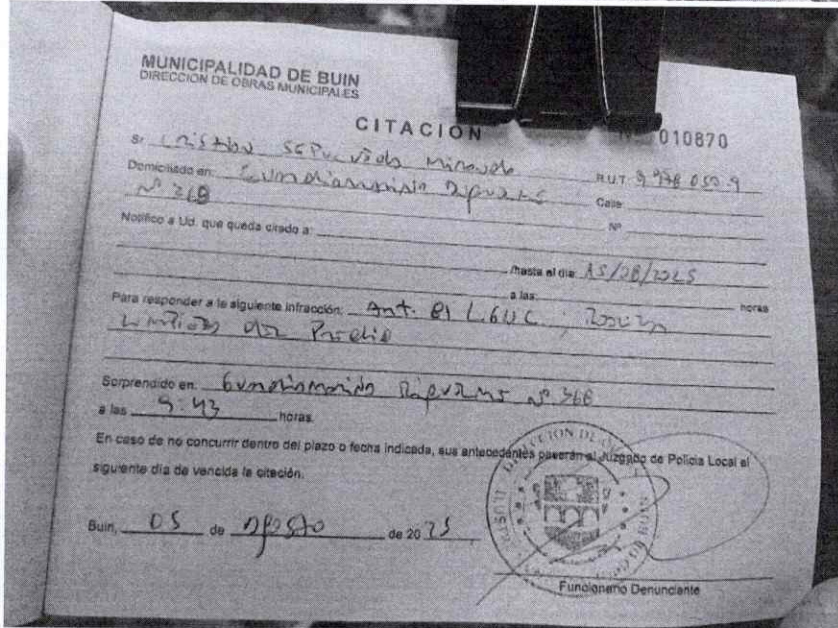 MUNICIPALIDAD DE BUIN
DIRECCION DE OBRAS MUNICIPALES
CITACION
Nº 010870
Sr Cristian Sepulveda Miranda RUT 9 978 050.9
Domiciliado en: Calle
Nº 368
Nº
Notifico a Ud. que queda citado a:
/hasta el día: 15/08/2025
a las: horas
Para responder a la siguiente infracción: Art. 81 LGUC;
Predio
Sorprendido en: Nº 368
a las 9:43 horas.
En caso de no concurrir dentro del plazo o fecha indicada, sus antecedentes pasarán al Juzgado de Policia Local el
siguiente día de vencida la citación.
Buin, 05 de agosto de 2025
Funcionario Denunciante